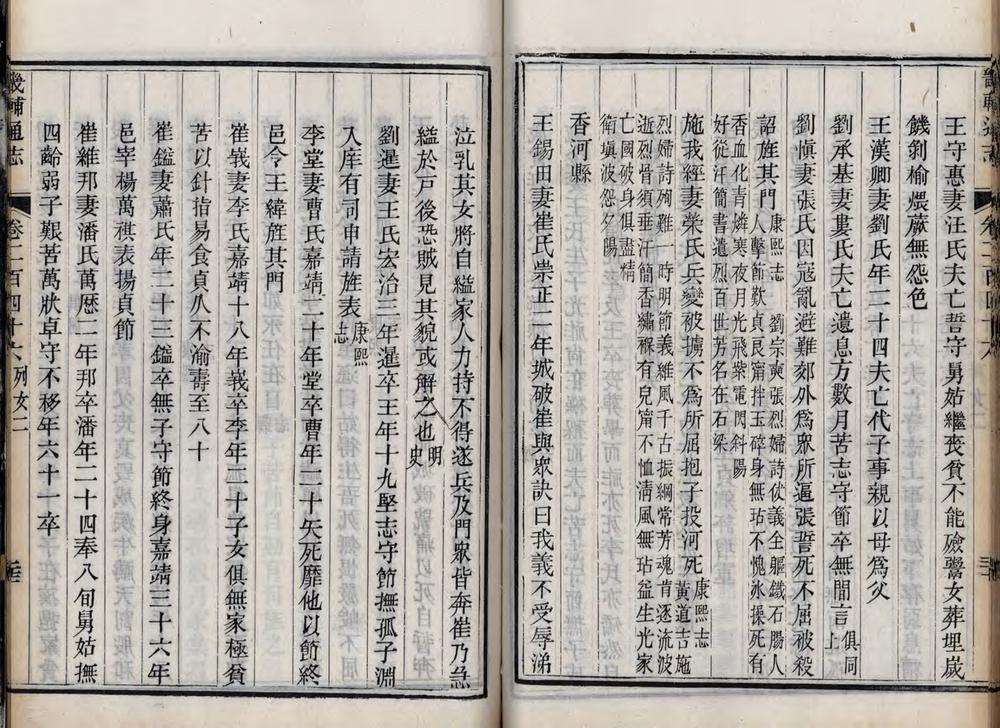 王守惠妻汪氏夫亡誓守舅姑繼喪貧不能殮鬻女葬埋歲
饑剝榆煨蕨無怨色
王漢卿妻劉氏年二十四夫亡代子事親以母爲父
劉承基妻婁氏夫亡遺息方數月苦志守節卒無閒言俱同上
劉愼妻張氏因寇亂避難郊外爲衆所逼張誓死不屈被殺
詔旌其門康熙志 劉宗奭張烈婦詩仗義全軀鐵石腸人
人擊節歎貞良甯拌玉碎身無玷不愧冰操死有
香血化靑燐寒夜月光飛紫電閃斜陽
好從汗簡書遺烈百世芳名在石梁
施我經妻榮氏兵變被擄不爲所屈抱子投河死康熙志 黃道吉施
烈婦詩殉難一時明節義維風千古振綱常芳魂肯逐流波
逝烈骨須垂汗簡香繡褓有兒甯不恤淸風無玷益生光家
亡國破身俱盡精
衛塡波怨夕陽
香河縣
王錫田妻崔氏崇正二年城破崔與衆訣曰我義不受辱涕
泣乳其女將自縊家人力持不得遂兵及門衆皆奔崔乃急
縊於戸後恐賊見其貌或解之也明史
劉暹妻王氏宏治三年暹卒王年十九堅志守節撫孤子淵
入庠有司申請旌表康熙志
李堂妻曹氏嘉靖二十年堂卒曹年二十矢死靡他以節終
邑令王緯旌其門
崔峩妻李氏嘉靖十八年峩卒李年二十子女俱無家極貧
苦以針指易食貞爪不渝壽至八十
崔鎰妻蕭氏年二十三鎰卒無子守節終身嘉靖三十六年
邑宰楊萬祺表揚貞節
崔維邦妻潘氏萬歷二年邦卒潘年二十四奉八旬舅姑撫
四齡弱子艱苦萬狀卓守不移年六十一卒
畿輔通志
卷二百四十六 列女二